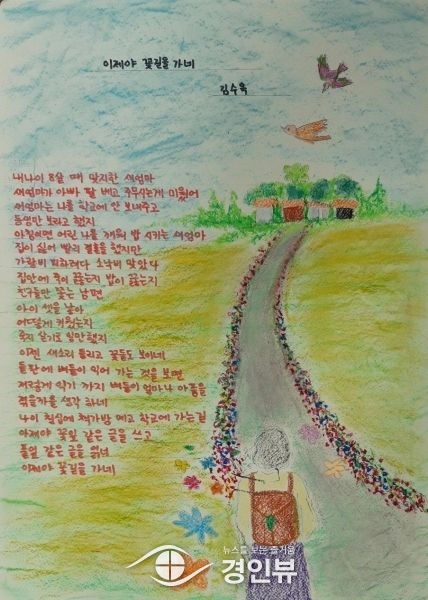 이제야 꽃길을 가네
김수옥
내나이 8살 때 맞이한 새엄마
새엄마가 아빠 팔 베고 주무시는게 미웠어
새엄마는 나를 학교에 안 보내주고
동생만 보라고 했지
아침이면 어린 나를 깨워 밥 시키는 새엄마
집이 싫어 빨리 결혼을 했지만
가랑비 피하려다 소낙비 맞았다
집안에 죽이 끓는지 밥이 끓는지
친구들만 쫓는 남편
아이 셋을 낳아
어떻게 키웠는지
죽지 살기로 일만했지
이젠 새소리 들리고 꽃들도 보이네
들판에 벼들이 익어 가는 것을 보면
저렇게 익기 까지 벼들이 얼마나 아픔을
겪을자를 생각 하네
나이 칠십에 책가방 메고 학교에 가는길
이제야 꽃잎 같은 글을 쓰고
풀잎 같은 글을 읽네
이제야 꽃길을 가네
뉴스를 보는 즐거움
경인뷰